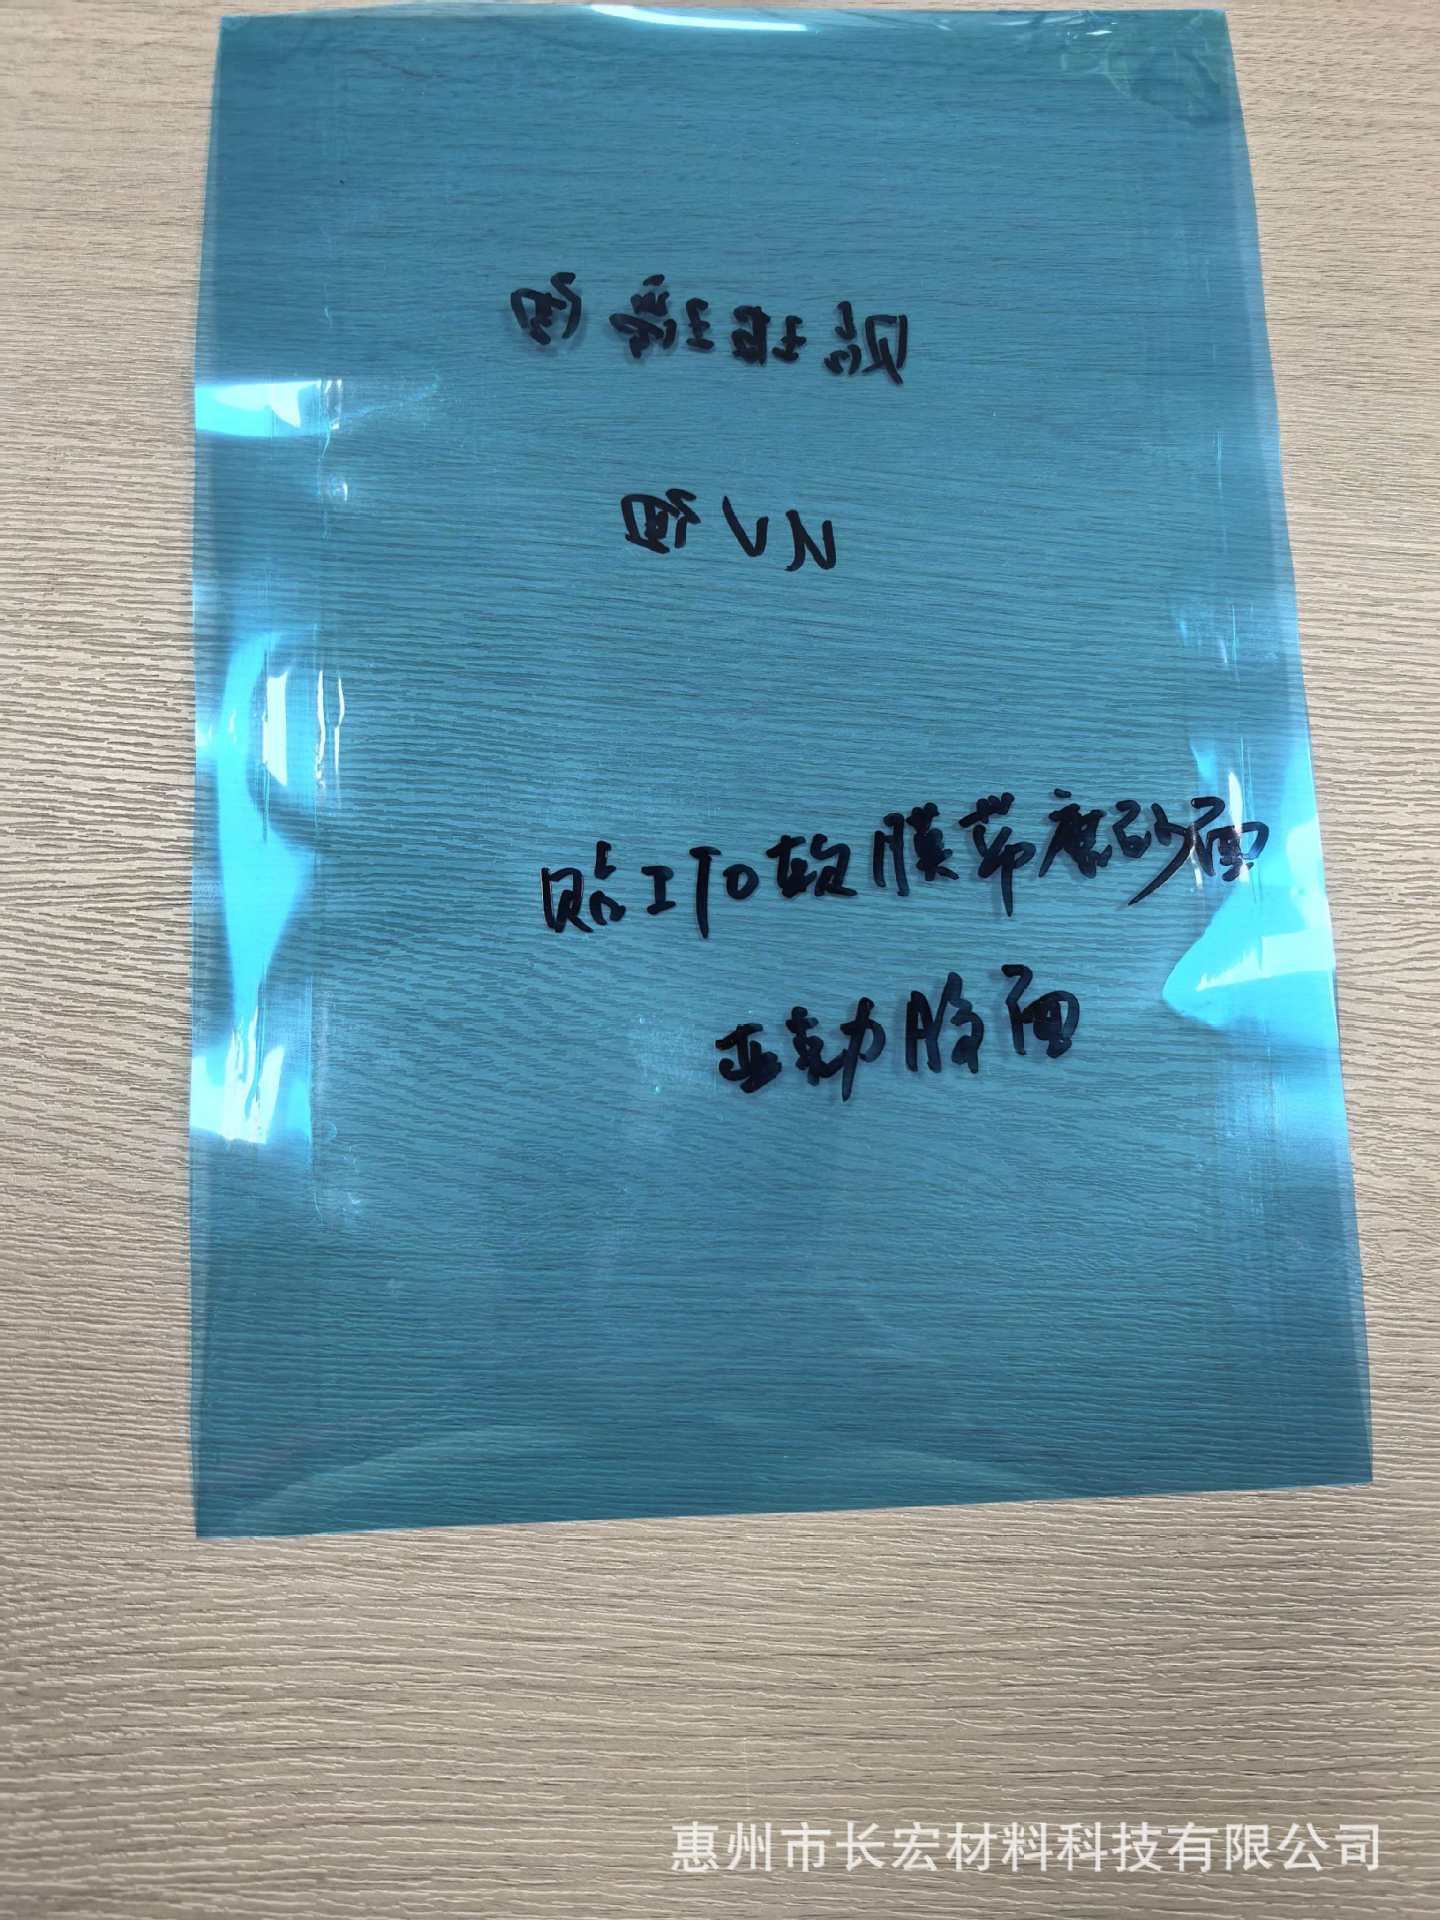 贴玻璃面
UV面
贴ITO软膜带磨砂面
亚克力胶面
惠州市长宏材料科技有限公司